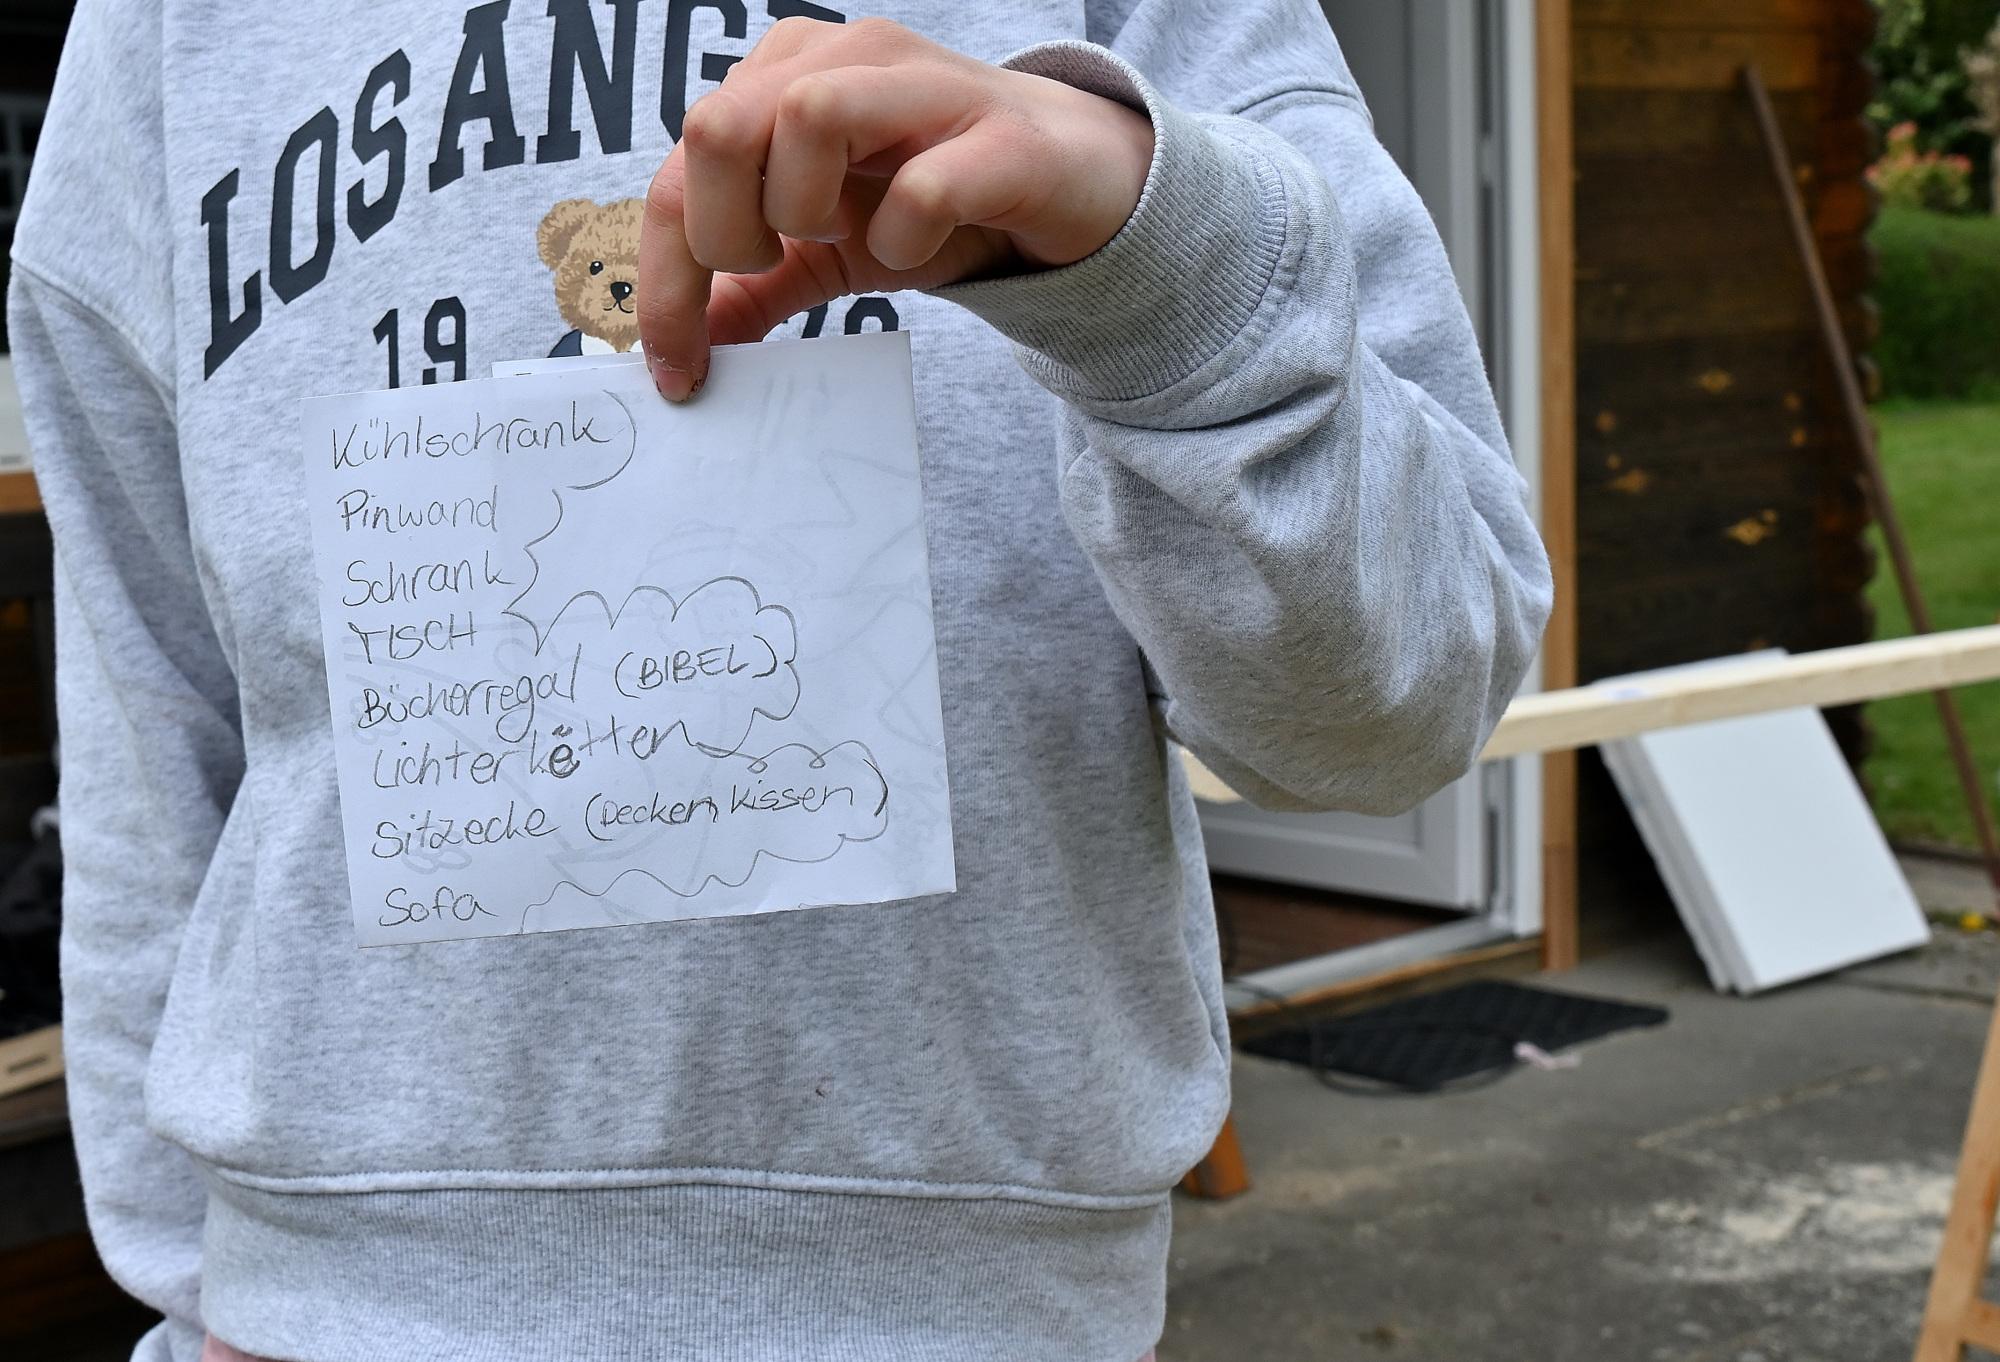 LOS ANGE
19 70
Kühlschrank
Pinwand
Schrank
TISCH
Bücherregal (BIBEL)
Lichterketten
Sitzecke (Decken, Kissen)
Sofa